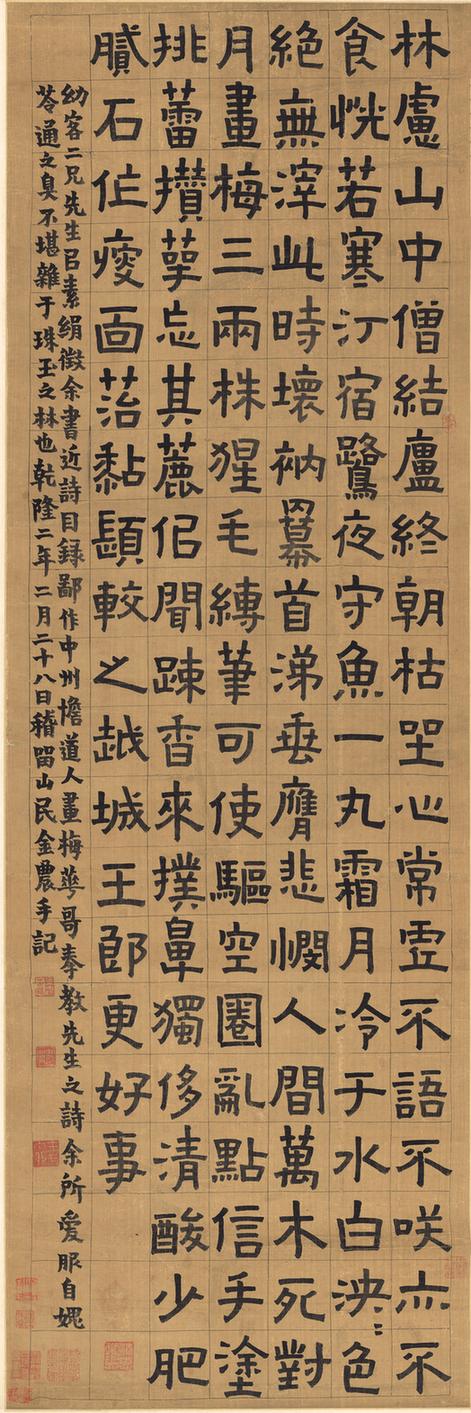 林慮山中僧結廬終朝枯坐心常虛不語不咲亦不
食恍若寒汀宿鷺夜守魚一丸霜月冷于水白泱〻色
絕無滓此時壞衲冪首涕垂膺悲憫人間萬木死對
月畫梅三兩株猩毛縛筆可使驅空圈亂點信手塗
挑蕾攢萼忘其麄但聞踈香來撲鼻獨侈清酸少肥
膩石作瘦面苔黏較之越城王郎更好事
幼客二兄先生㠯素絹徵余書近詩目録鄙作中州憺道人畫梅蕚哥奉教先生之詩余所愛服自媿
苓通之臭不堪雜于珠玉之林也乾隆二年二月二十八日稽留山民金農手記